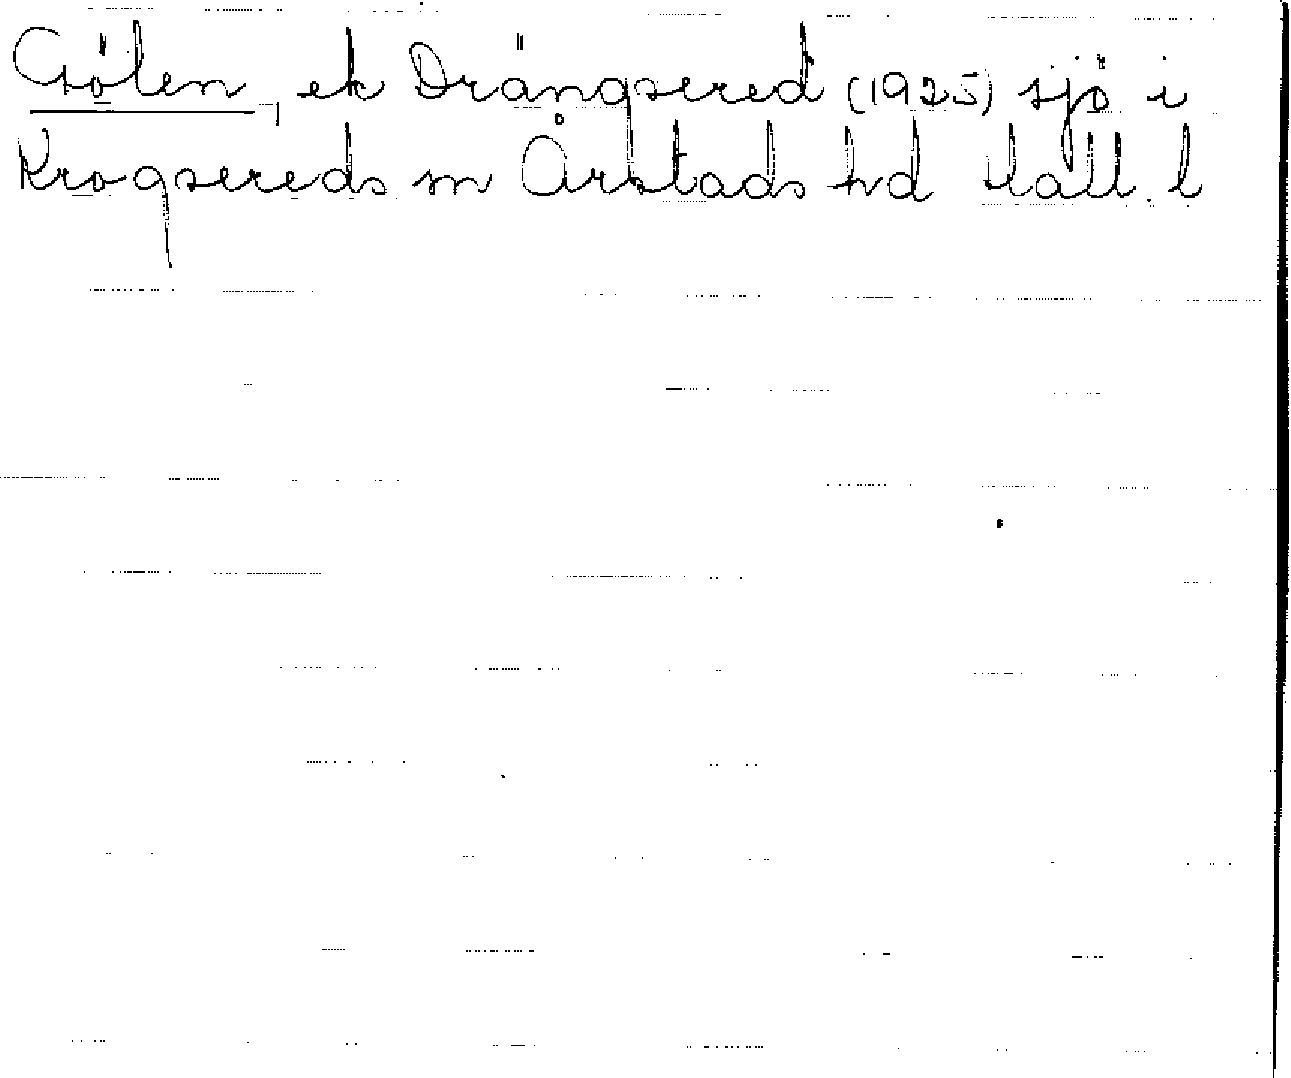 Gölen, ek Drängsered (1925) sjö i
Krogsereds sn Årstads hd Hall. l